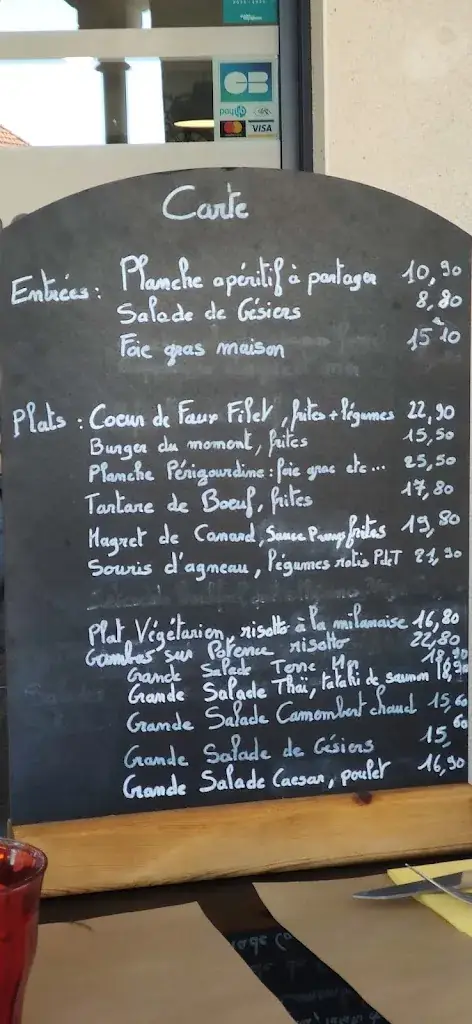 CB
VISA
Carte
Entrées : Planche apéritif à partager 10,90
Salade de Gésiers 8,80
Foie gras maison 15,10
Plats : Coeur de Faux Filet, frites + légumes 22,90
Burger du moment, frites 15,50
Planche Périgourdine : foie gras etc... 25,50
Tartare de Boeuf, frites 17,80
Magret de Canard, Sauce frites 19,80
Souris d'agneau, légumes rotis PdT 21,90
Plat Végétarien, risotto à la milanaise 16,80
Gambas sur Potence risotto 22,80
Grande Salade Terre Mer 18,90
Grande Salade Thaï, tataki de saumon 18,90
Grande Salade Camembert chaud 15,60
Grande Salade de Gésiers 15,60
Grande Salade Caesar, poulet 16,90